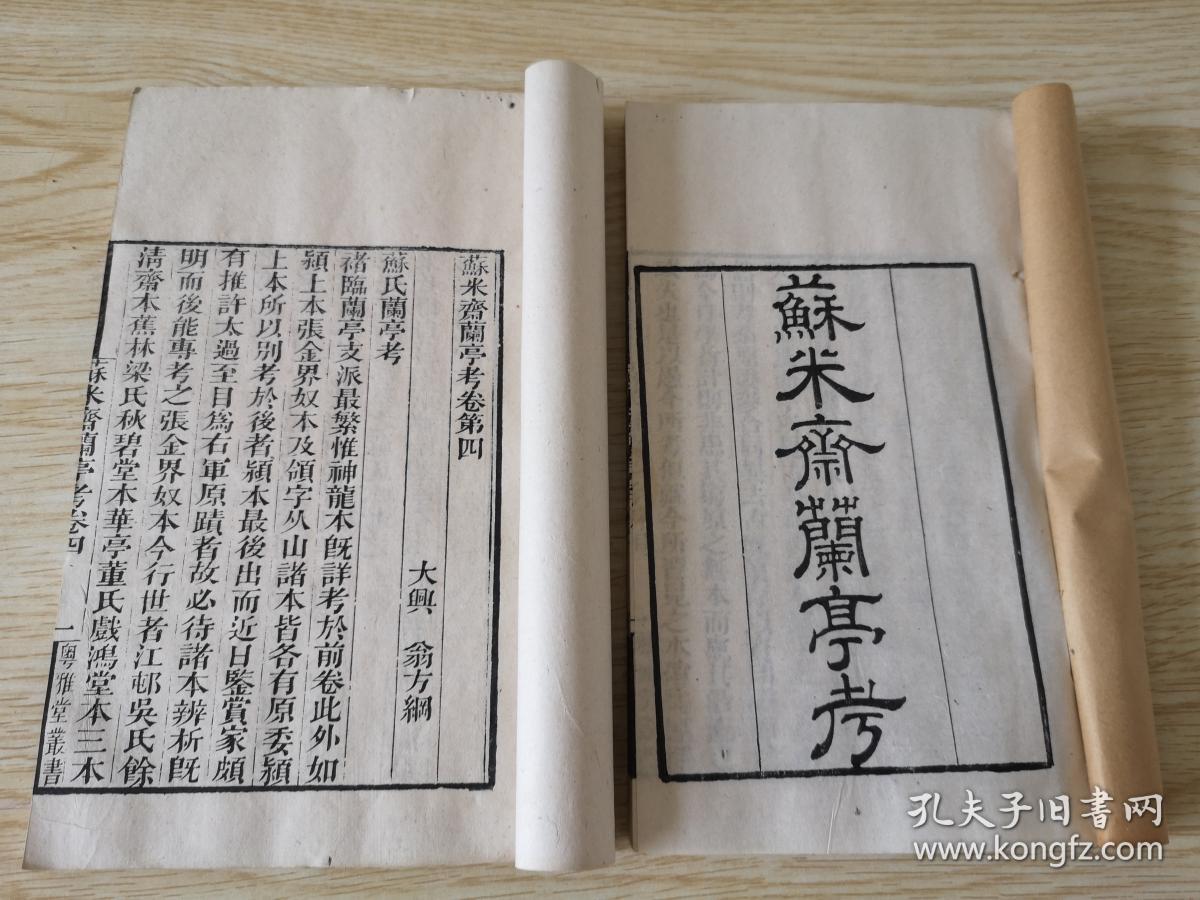 蘇米齋蘭亭考
蘇米齋蘭亭考卷第四
大興 翁方綱
蘇氏蘭亭考
褚臨蘭亭支派最繁惟神龍本旣詳考於前卷此外如
潁上本張金界奴本及領字从山諸本皆各有原委潁
上本所以別考於後者潁本最後出而近日鑒賞家頗
有推許太過至目爲右軍原蹟者故必待諸本辨析旣
明而後能專考之張金界奴本今行世者江邨吳氏餘
淸齋本蕉林梁氏秋碧堂本華亭董氏戲鴻堂本三本
蘇米齋蘭亭考卷四
一
粵雅堂叢書
孔夫子旧书网
www.kongfz.com